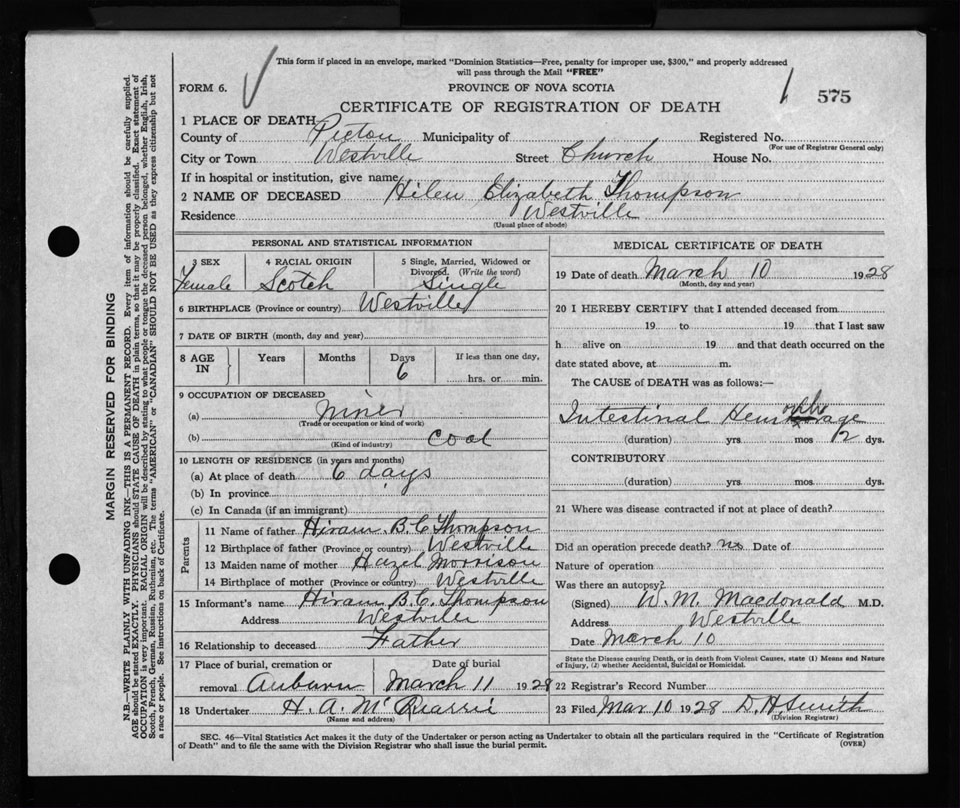 This form if placed in an envelope, marked "Dominion Statistics—Free, penalty for improper use, $300," and properly addressed
will pass through the Mail "FREE"
FORM 6.
PROVINCE OF NOVA SCOTIA
1 575
CERTIFICATE OF REGISTRATION OF DEATH
1 PLACE OF DEATH
County of Pictou Municipality of Registered No.
(For use of Registrar General only)
City or Town Westville Street Church House No.
If in hospital or institution, give name
2 NAME OF DECEASED Hilen Elizabeth Thompson
Residence Westville
(Usual place of abode)
PERSONAL AND STATISTICAL INFORMATION
3 SEX 4 RACIAL ORIGIN 5 Single, Married, Widowed or
Divorced. (Write the word)
Female Scotch Single
6 BIRTHPLACE (Province or country) Westville
7 DATE OF BIRTH (month, day and year)
8 AGE IN Years Months Days 6 If less than one day,
hrs. or min.
9 OCCUPATION OF DECEASED
(a) Miner
(Trade or occupation or kind of work)
(b) Coal
(Kind of industry)
10 LENGTH OF RESIDENCE (in years and months)
(a) At place of death 6 days
(b) In province
(c) In Canada (if an immigrant)
Parents
11 Name of father Hiram B. C. Thompson
12 Birthplace of father (Province or country) Westville
13 Maiden name of mother Hazel Morrison
14 Birthplace of mother (Province or country) Westville
15 Informant's name Hiram B. C. Thompson
Address Westville
16 Relationship to deceased Father
17 Place of burial, cremation or Date of burial
removal Auburn March 11 1928
18 Undertaker H. A. McQuarrie
(Name and address)
MEDICAL CERTIFICATE OF DEATH
19 Date of death March 10 1928
(Month, day and year)
20 I HEREBY CERTIFY that I attended deceased from
19 to 19 that I last saw
h alive on 19 and that death occurred on the
date stated above, at m.
The CAUSE of DEATH was as follows:—
Intestinal Hemorrhage
(duration) yrs mos 2 dys.
CONTRIBUTORY
(duration) yrs mos dys.
21 Where was disease contracted if not at place of death?
Did an operation precede death? no Date of
Nature of operation
Was there an autopsy?
(Signed) W. M. Macdonald M.D.
Address Westville
Date March 10
State the Disease causing Death, or in death from Violent Causes, state (1) Means and Nature
of Injury, (2) whether Accidental, Suicidal or Homicidal.
22 Registrar's Record Number
23 Filed Mar 10 1928 D. H Smith
(Division Registrar)
SEC. 46—Vital Statistics Act makes it the duty of the Undertaker or person acting as Undertaker to obtain all the particulars required in the "Certificate of Registration
of Death" and to file the same with the Division Registrar who shall issue the burial permit.
(OVER)
MARGIN RESERVED FOR BINDING
N.B.—WRITE PLAINLY WITH UNFADING INK—THIS IS A PERMANENT RECORD. Every item of information should be carefully supplied.
AGE should be stated EXACTLY. PHYSICIANS should STATE CAUSE OF DEATH in plain terms, so that it may be properly classified. Exact statement of
OCCUPATION is very important. RACIAL ORIGIN will be described by stating to what people or tongue the deceased person belonged, whether English, Irish,
Scotch, French, German, Russian, Ruthenian, etc. The terms "AMERICAN" or "CANADIAN" SHOULD NOT BE USED as they express citizenship but not
a race or people. See instructions on back of Certificate.